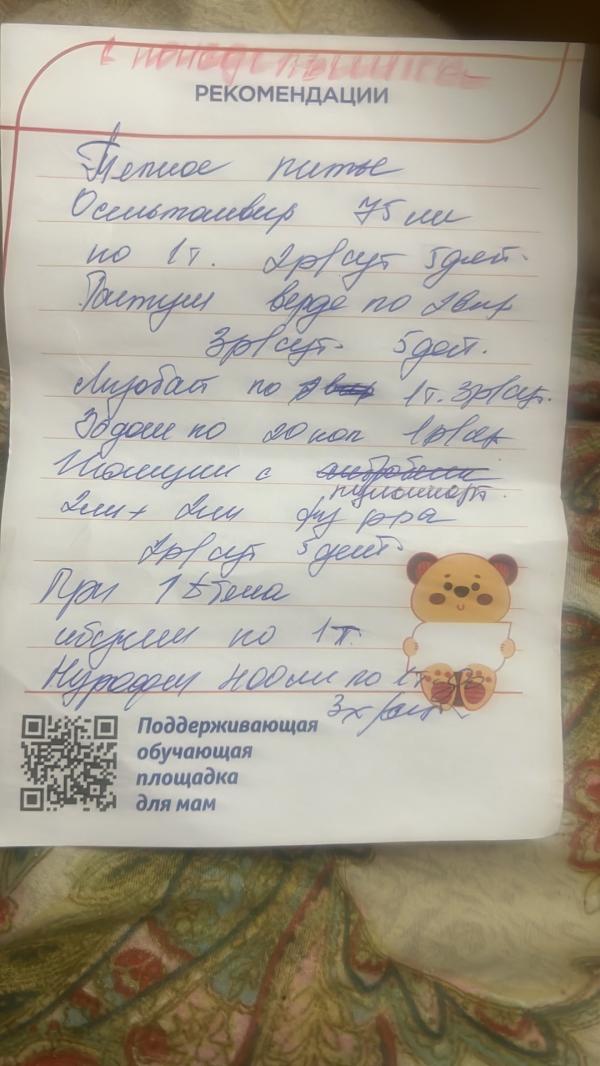 с понедельника
РЕКОМЕНДАЦИИ
Теплое питье
Осельтамивир 75 мг
по 1 т. 2р/сут 5 дней.
Тантум верде по 2 впр
3р/сут. 5 дней.
Лизобакт по 1т. 3р/сут.
Зодак по 20 кап 1р/сут
Ингаляции с
пульмикорт.
2мл + 2мл физ р-ра
2р/сут 5 дней
При ↑ t тела
ибуклин по 1т.
Нурофен 400мг по 1т
3х/сут
Поддерживающая
обучающая
площадка
для мам